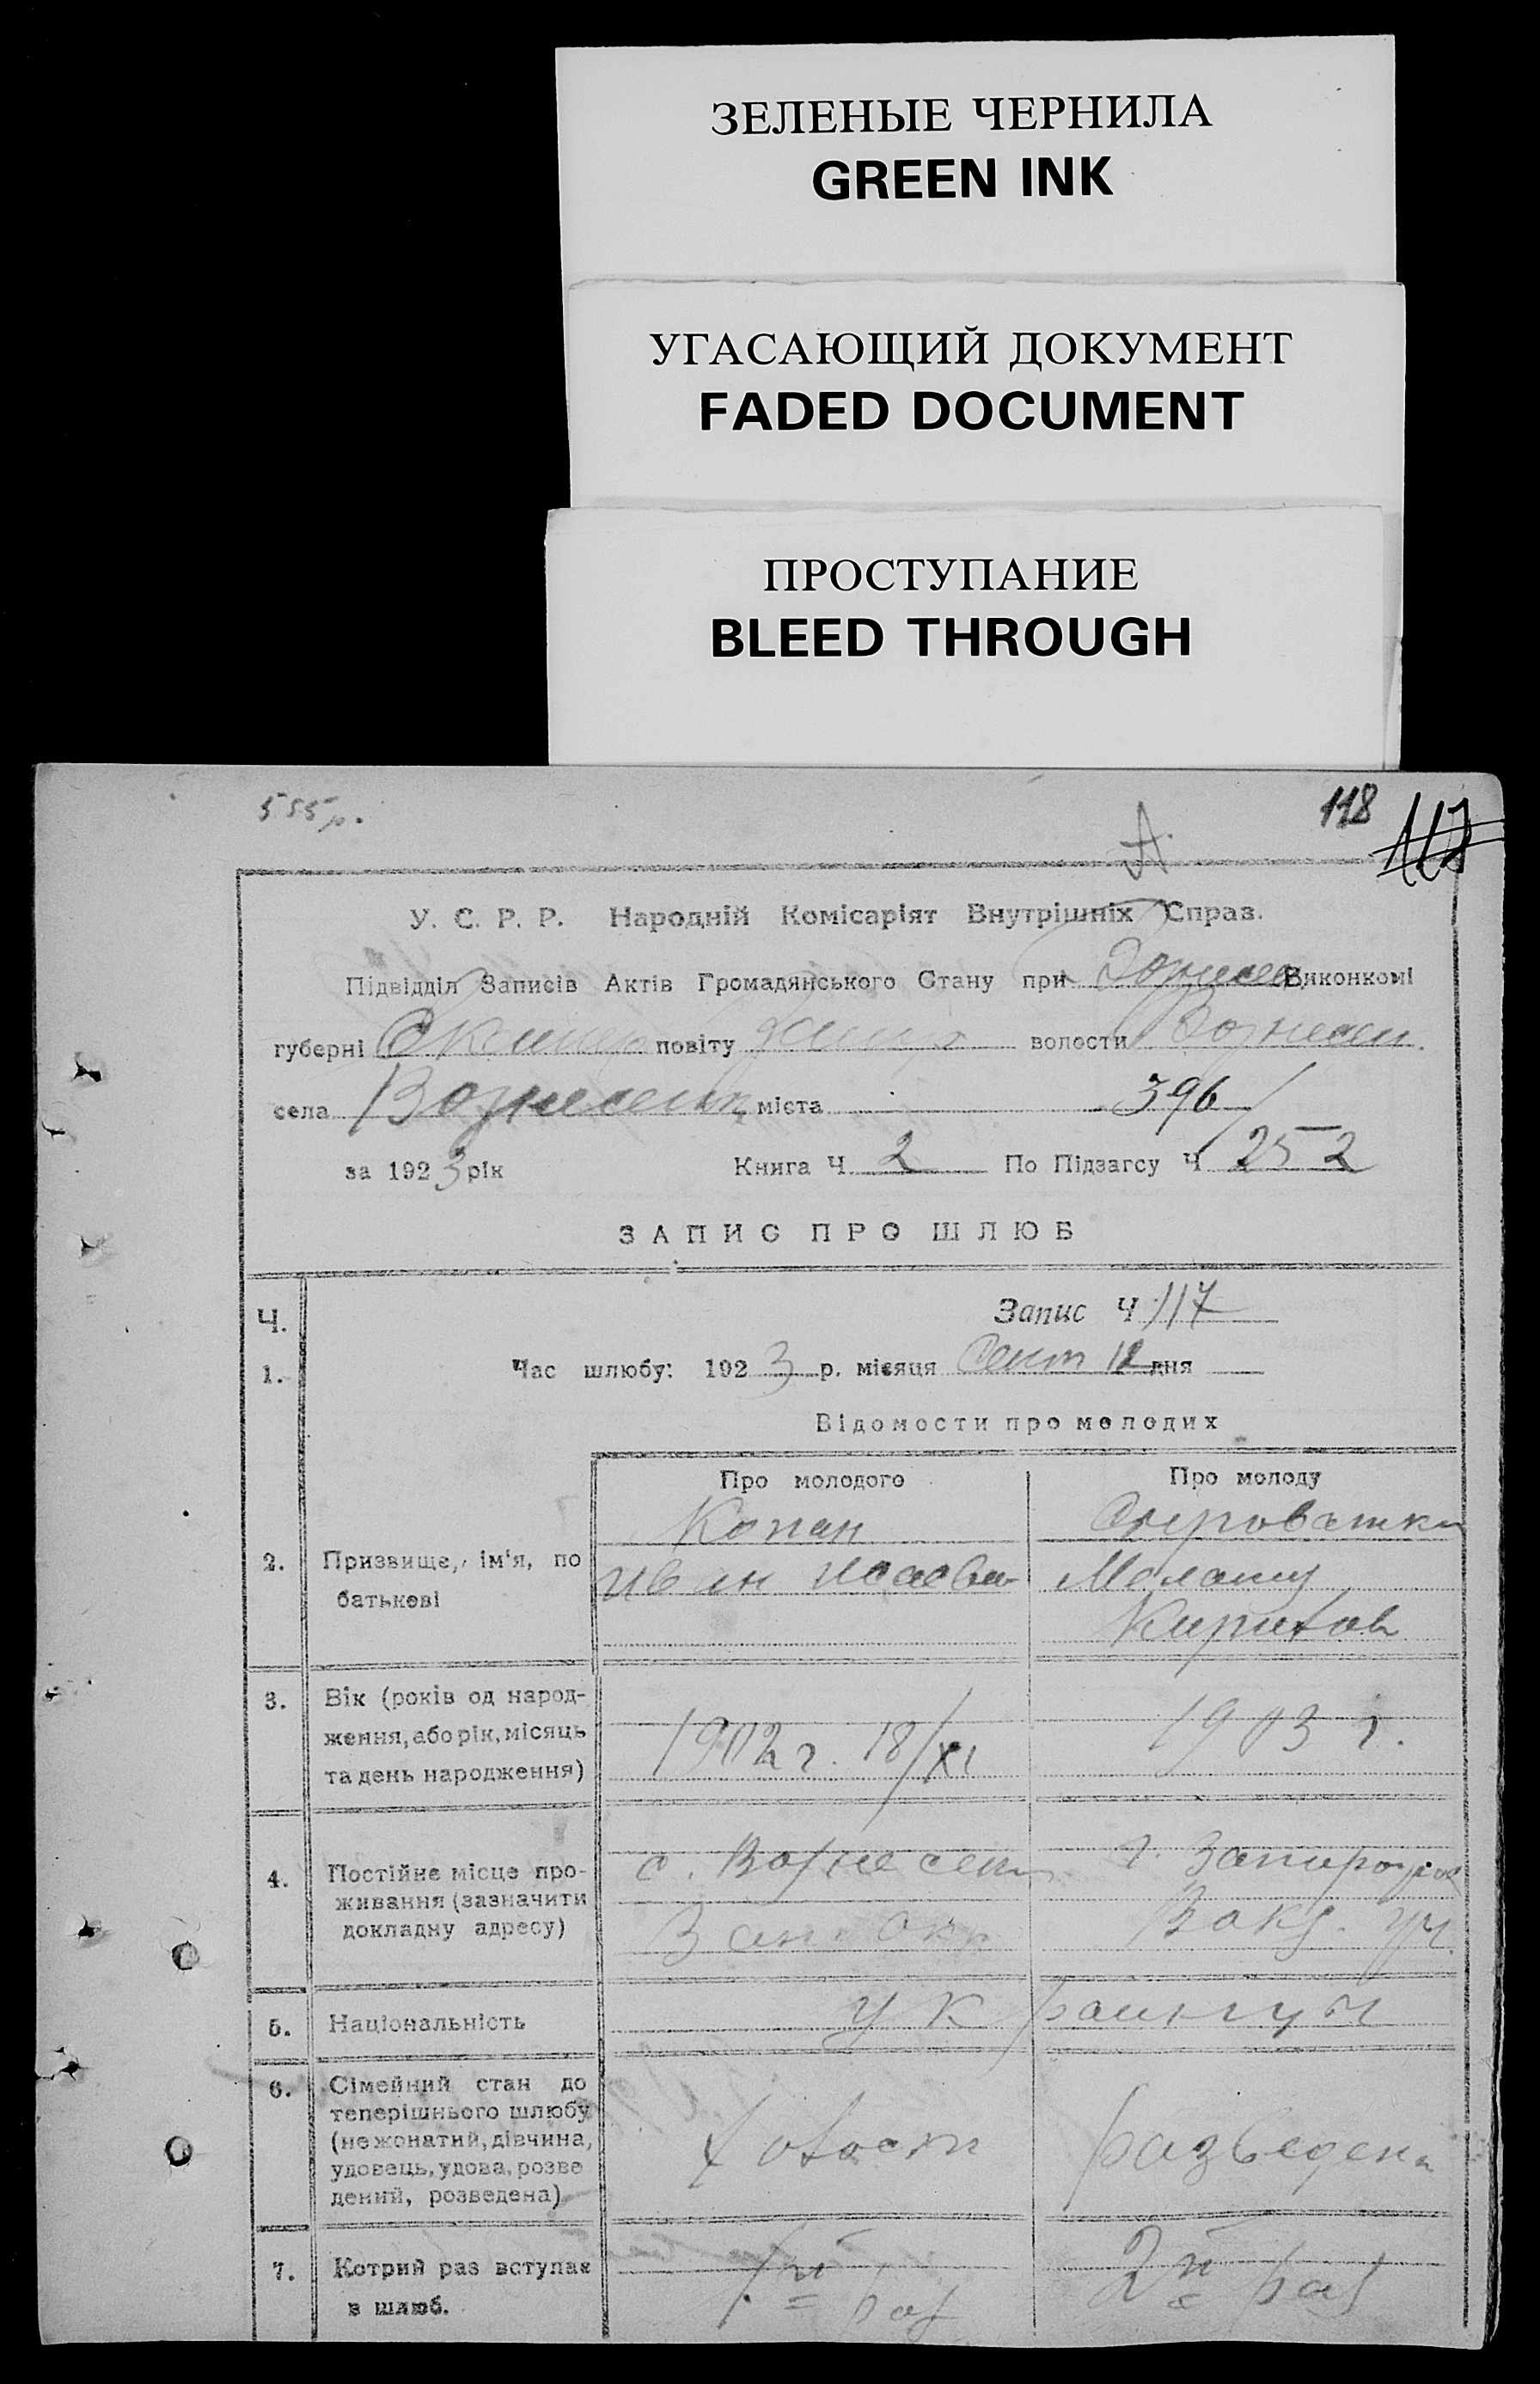 ЗЕЛЕНЫЕ ЧЕРНИЛА
GREEN INK
УГАСАЮЩИЙ ДОКУМЕНТ
FADED DOCUMENT
ПРОСТУПАНИЕ
BLEED THROUGH
555р.
118
А
У. С. Р. Р. Народній Комісаріят Внутрішніх Справ.
Підвідділ Записів Актів Громадянського Стану при Вознесен Виконкомі
губерні повіту волости Вознесен.
села Вознесенк міста 396
за 1923 рік Книга Ч 2 По Підзагсу Ч 252
ЗАПИС ПРО ШЛЮБ
Ч. Запис Ч 117
1. Час шлюбу: 1923 р. місяця Сент 12 дня
Відомости про молодих
Про молодого Про молоду
Копан Сыроватка
2. Призвище, ім'я, по батькові
Иван Исаев Меланию
3. Вік (років од народ-
ження, або рік, місяць
та день народження)
1902 г. 18/XI 1903 г.
4. Постійне місце про-
живання (зазначити
докладну адресу)
с. Вознесенк г. Запорож
Зап. Окр
5. Національність украинцы
6. Сімейний стан до
теперішнього шлюбу
(нежонатий, дівчина,
удовець, удова, розве
дений, розведена)
холост разведена
7. Котрий раз вступає
в шлюб.
1й раз 2й раз